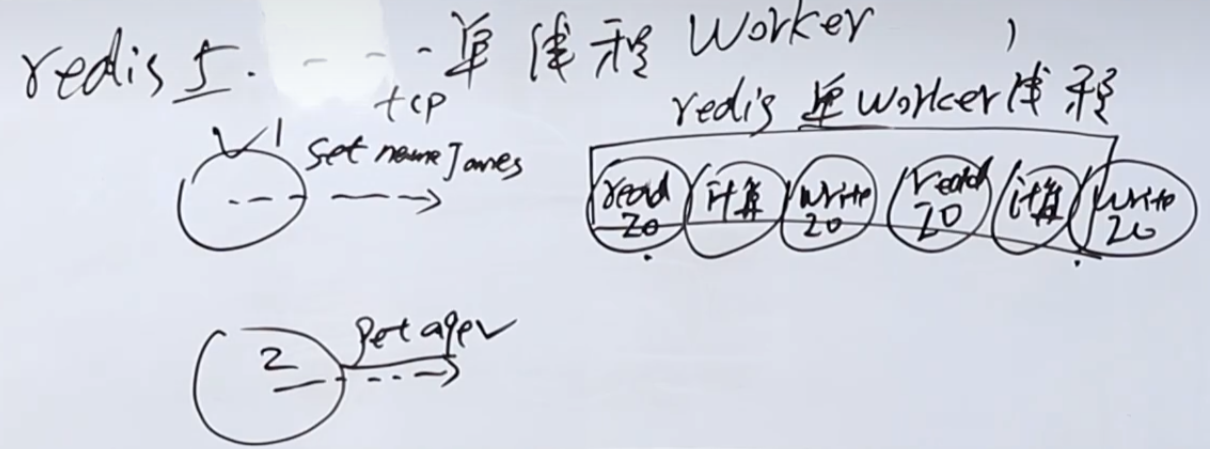 redis 5. - - - 单线程 Worker
tcp
redis 单worker线程
1 set name James
read IO 计算 write IO read IO 计算 write IO
2 get age